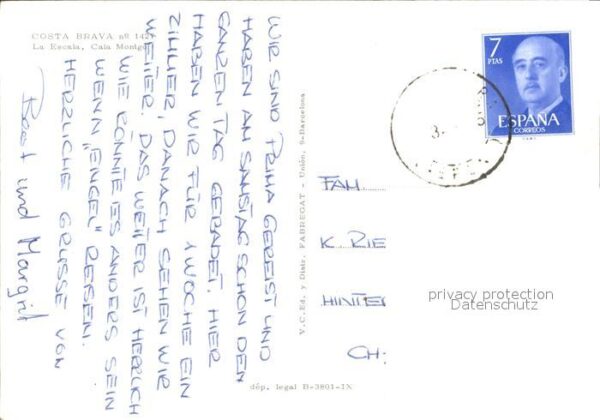 COSTA BRAVA nº 142
La Escala, Cala Montgó
WIR SIND PRIMA GEREIST UND
HABEN AM SAMSTAG SCHON DEN
GANZEN TAG GEBADET. HIER
HABEN WIR FÜR 1 WOCHE EIN
ZIMMER, DANACH SEHEN WIR
WEITER. DAS WETTER IST HERRLICH
WIE KÖNNTE ES ANDERS SEIN
WENN „ENGEL" REISEN.
HERZLICHE GRÜSSE VON
und Margrit
V.C.Ed. y Distr. FABREGAT - Unión, 9-Barcelona
dép. legal B-3801-IX
7
PTAS
ESPAÑA
CORREOS
FAM
K. RIE
HINTE
CH-
privacy protection
Datenschutz